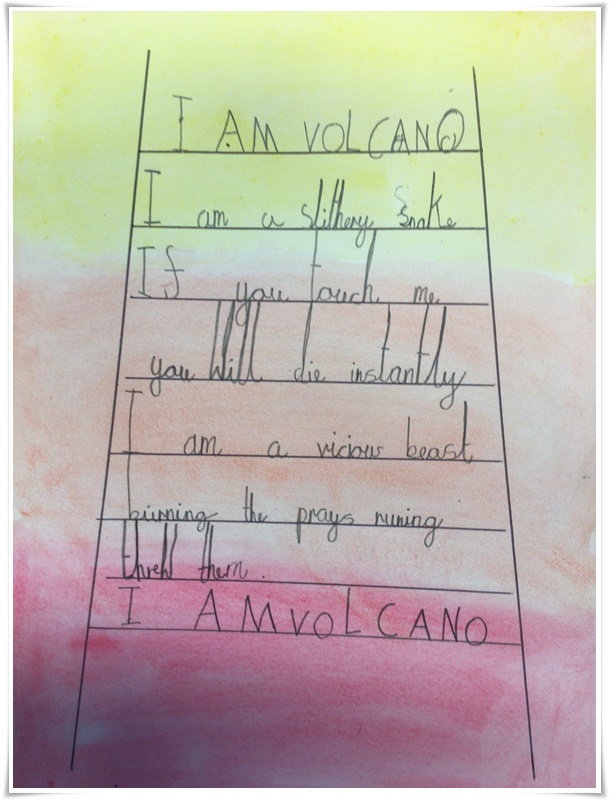 I AM VOLCANO
I am a slithery snake
If you touch me
you will die instantly
I am a vicious beast
burning the prays runing
threw them.
I AM VOLCANO